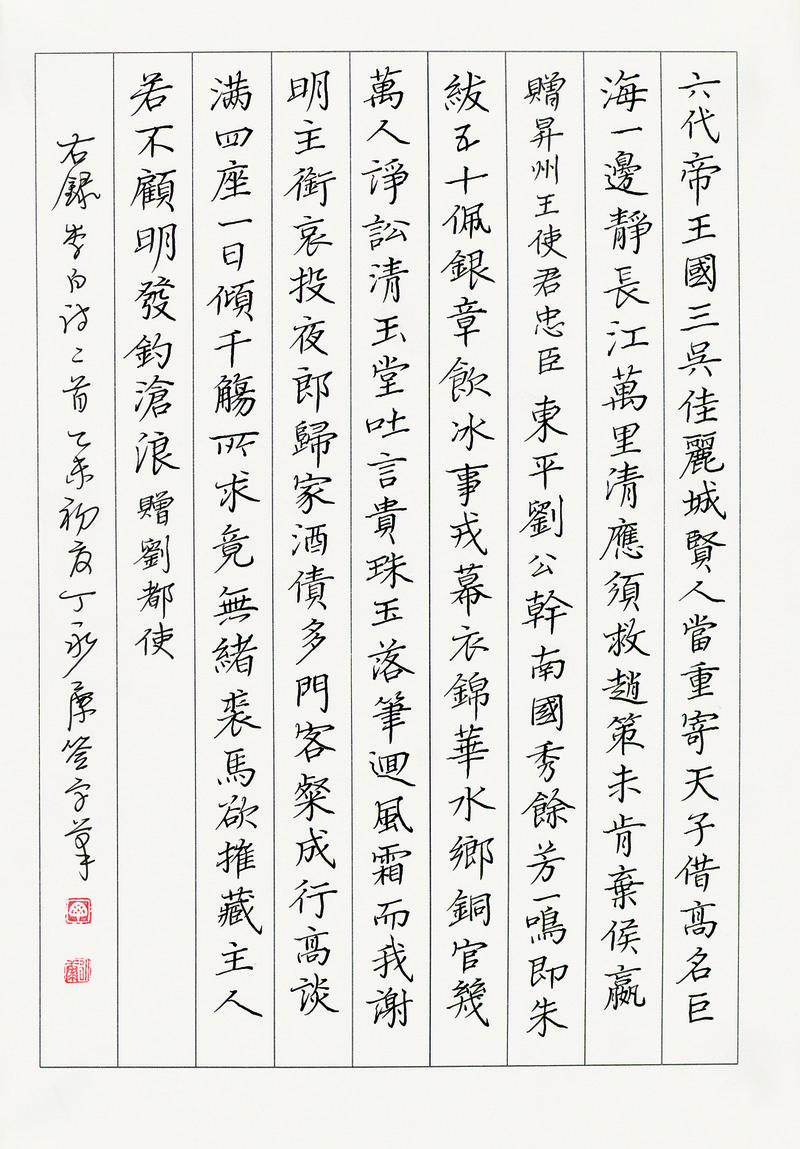 六代帝王國三吳佳麗城賢人當重寄天子借高名巨
海一邊靜長江萬里清應須救趙策未肯棄侯嬴
贈昇州王使君忠臣東平劉公幹南國秀餘芳一鳴即朱
紱五十佩銀章飲冰事戎幕衣錦華水鄉銅官幾
萬人諍訟清玉堂吐言貴珠玉落筆迴風霜而我謝
明主銜哀投夜郎歸家酒債多門客粲成行高談
满四座一日傾千觴所求竟無緒裘馬欲摧藏主人
若不顧明發釣滄浪贈劉都使
右録李白詩二首乙未初夏丁永康签字筆